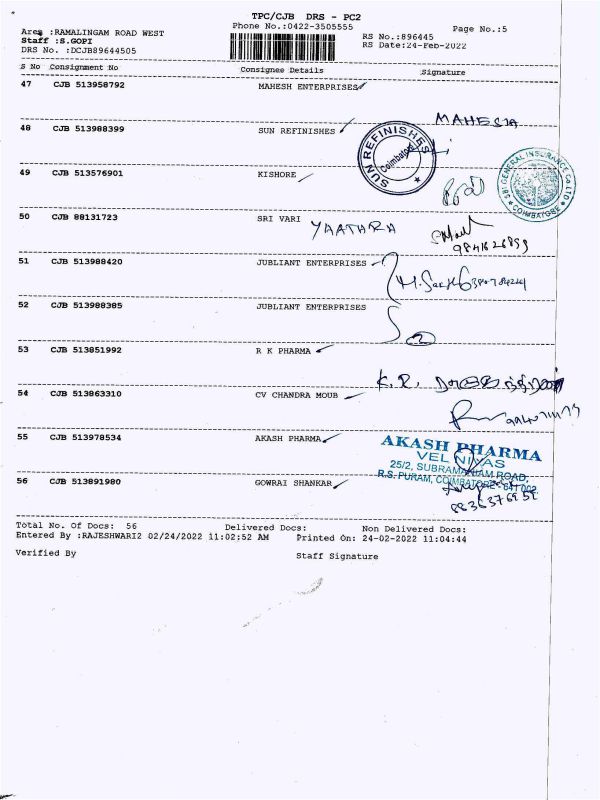 TPC/CJB DRS - PC2
Phone No.:0422-3505555
Page No.:5
Area :RAMALINGAM ROAD WEST
Staff :S.GOPI
DRS No. :DCJB89644505
RS No.:896445
RS Date:24-Feb-2022
S No Consignment No Consignee Details Signature
47 CJB 513958792 MAHESH ENTERPRISES
MAHESH
48 CJB 513988399 SUN REFINISHES
SUN REFINISHES
Coimbatore
49 CJB 513576901 KISHORE
SBI GENERAL INSURANCE CO LTD
COIMBATORE
50 CJB 88131723 SRI VARI
YAATHRA
51 CJB 513988420 JUBLIANT ENTERPRISES
52 CJB 513988385 JUBLIANT ENTERPRISES
2
53 CJB 513851992 R K PHARMA
K. R.
54 CJB 513863310 CV CHANDRA MOUB
55 CJB 513978534 AKASH PHARMA
AKASH PHARMA
VEL NIVAS
25/2, SUBRAMANIAM ROAD,
R.S. PURAM, COIMBATORE - 641 002.
56 CJB 513891980 GOWRAI SHANKAR
Total No. Of Docs: 56 Delivered Docs: Non Delivered Docs:
Entered By :RAJESHWARI2 02/24/2022 11:02:52 AM Printed On: 24-02-2022 11:04:44
Verified By Staff Signature